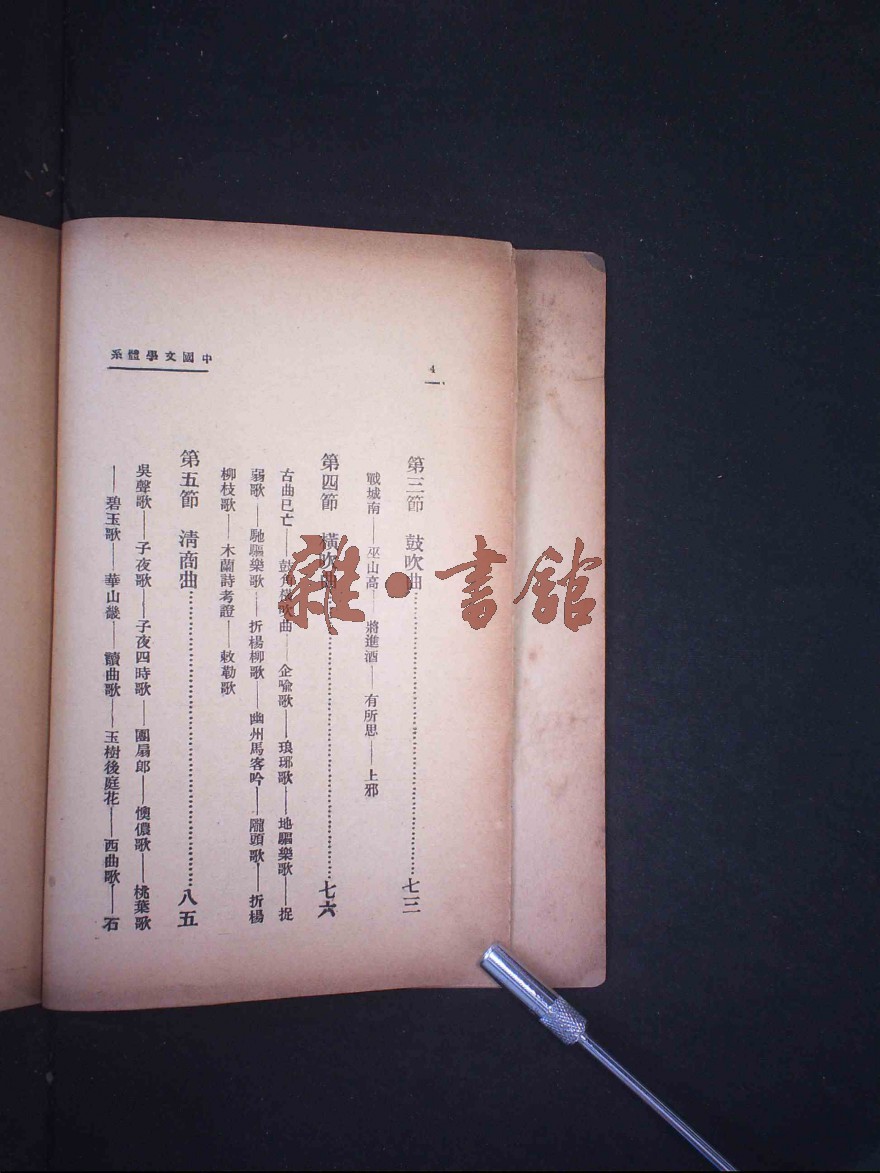 中國文學體系
4
第三節　鼓吹曲……七三
戰城南——巫山高——將進酒——有所思——上邪
第四節　橫吹曲……七六
古曲已亡——鼓角橫吹曲——企喩歌——琅琊歌——地驅樂歌——捉
弱歌——馳驅樂歌——折楊柳歌——幽州馬客吟——隴頭歌——折楊
柳枝歌——木蘭詩考證——敕勒歌
第五節　清商曲……八五
吳聲歌——子夜歌——子夜四時歌——團扇郎——懊儂歌——桃葉歌
——碧玉歌——華山畿——讀曲歌——玉樹後庭花——西曲歌——石
雜·書館